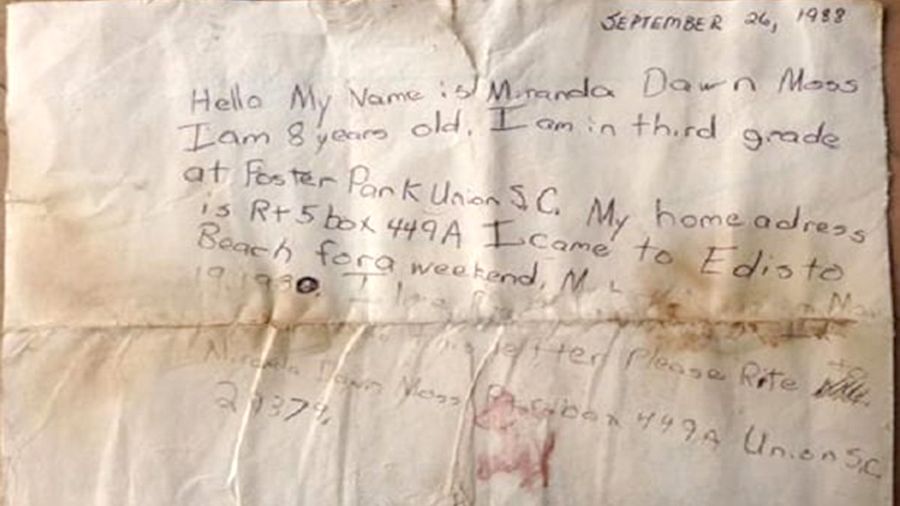 SEPTEMBER 26, 1988
Hello My Name is Miranda Dawn Moss
I am 8 years old. I am in third grade
at Foster Park Union S.C. My home adress
is Rt 5 box 449A I came to Edisto
Beach for a weekend,
letter Please Rite to
Miranda Dawn Moss box 449A Union S.C.
29379,